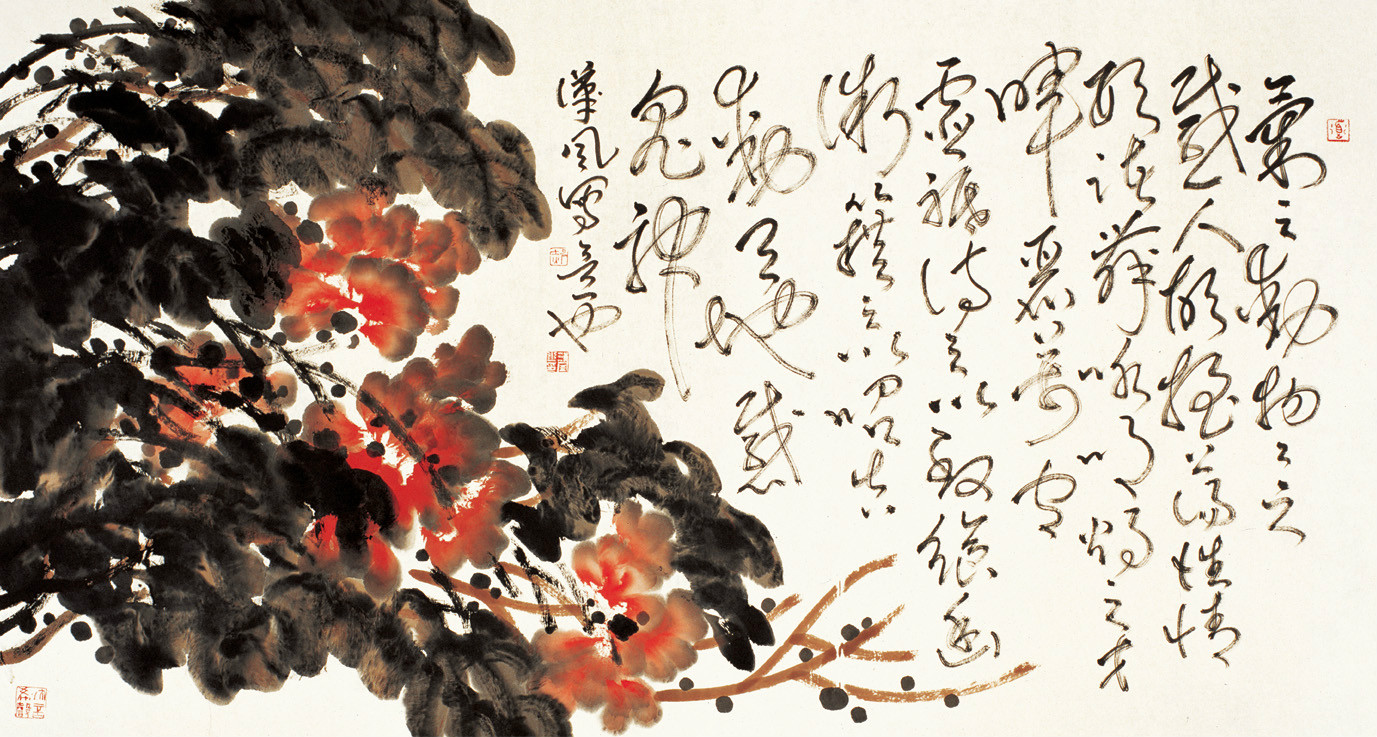 氣之動物物之
感人故搖蕩性情
形諸舞詠燭三才
暉麗萬有
靈祇待之以致饗幽
微藉之以昭告
動天地感
鬼神
漢風寫意也